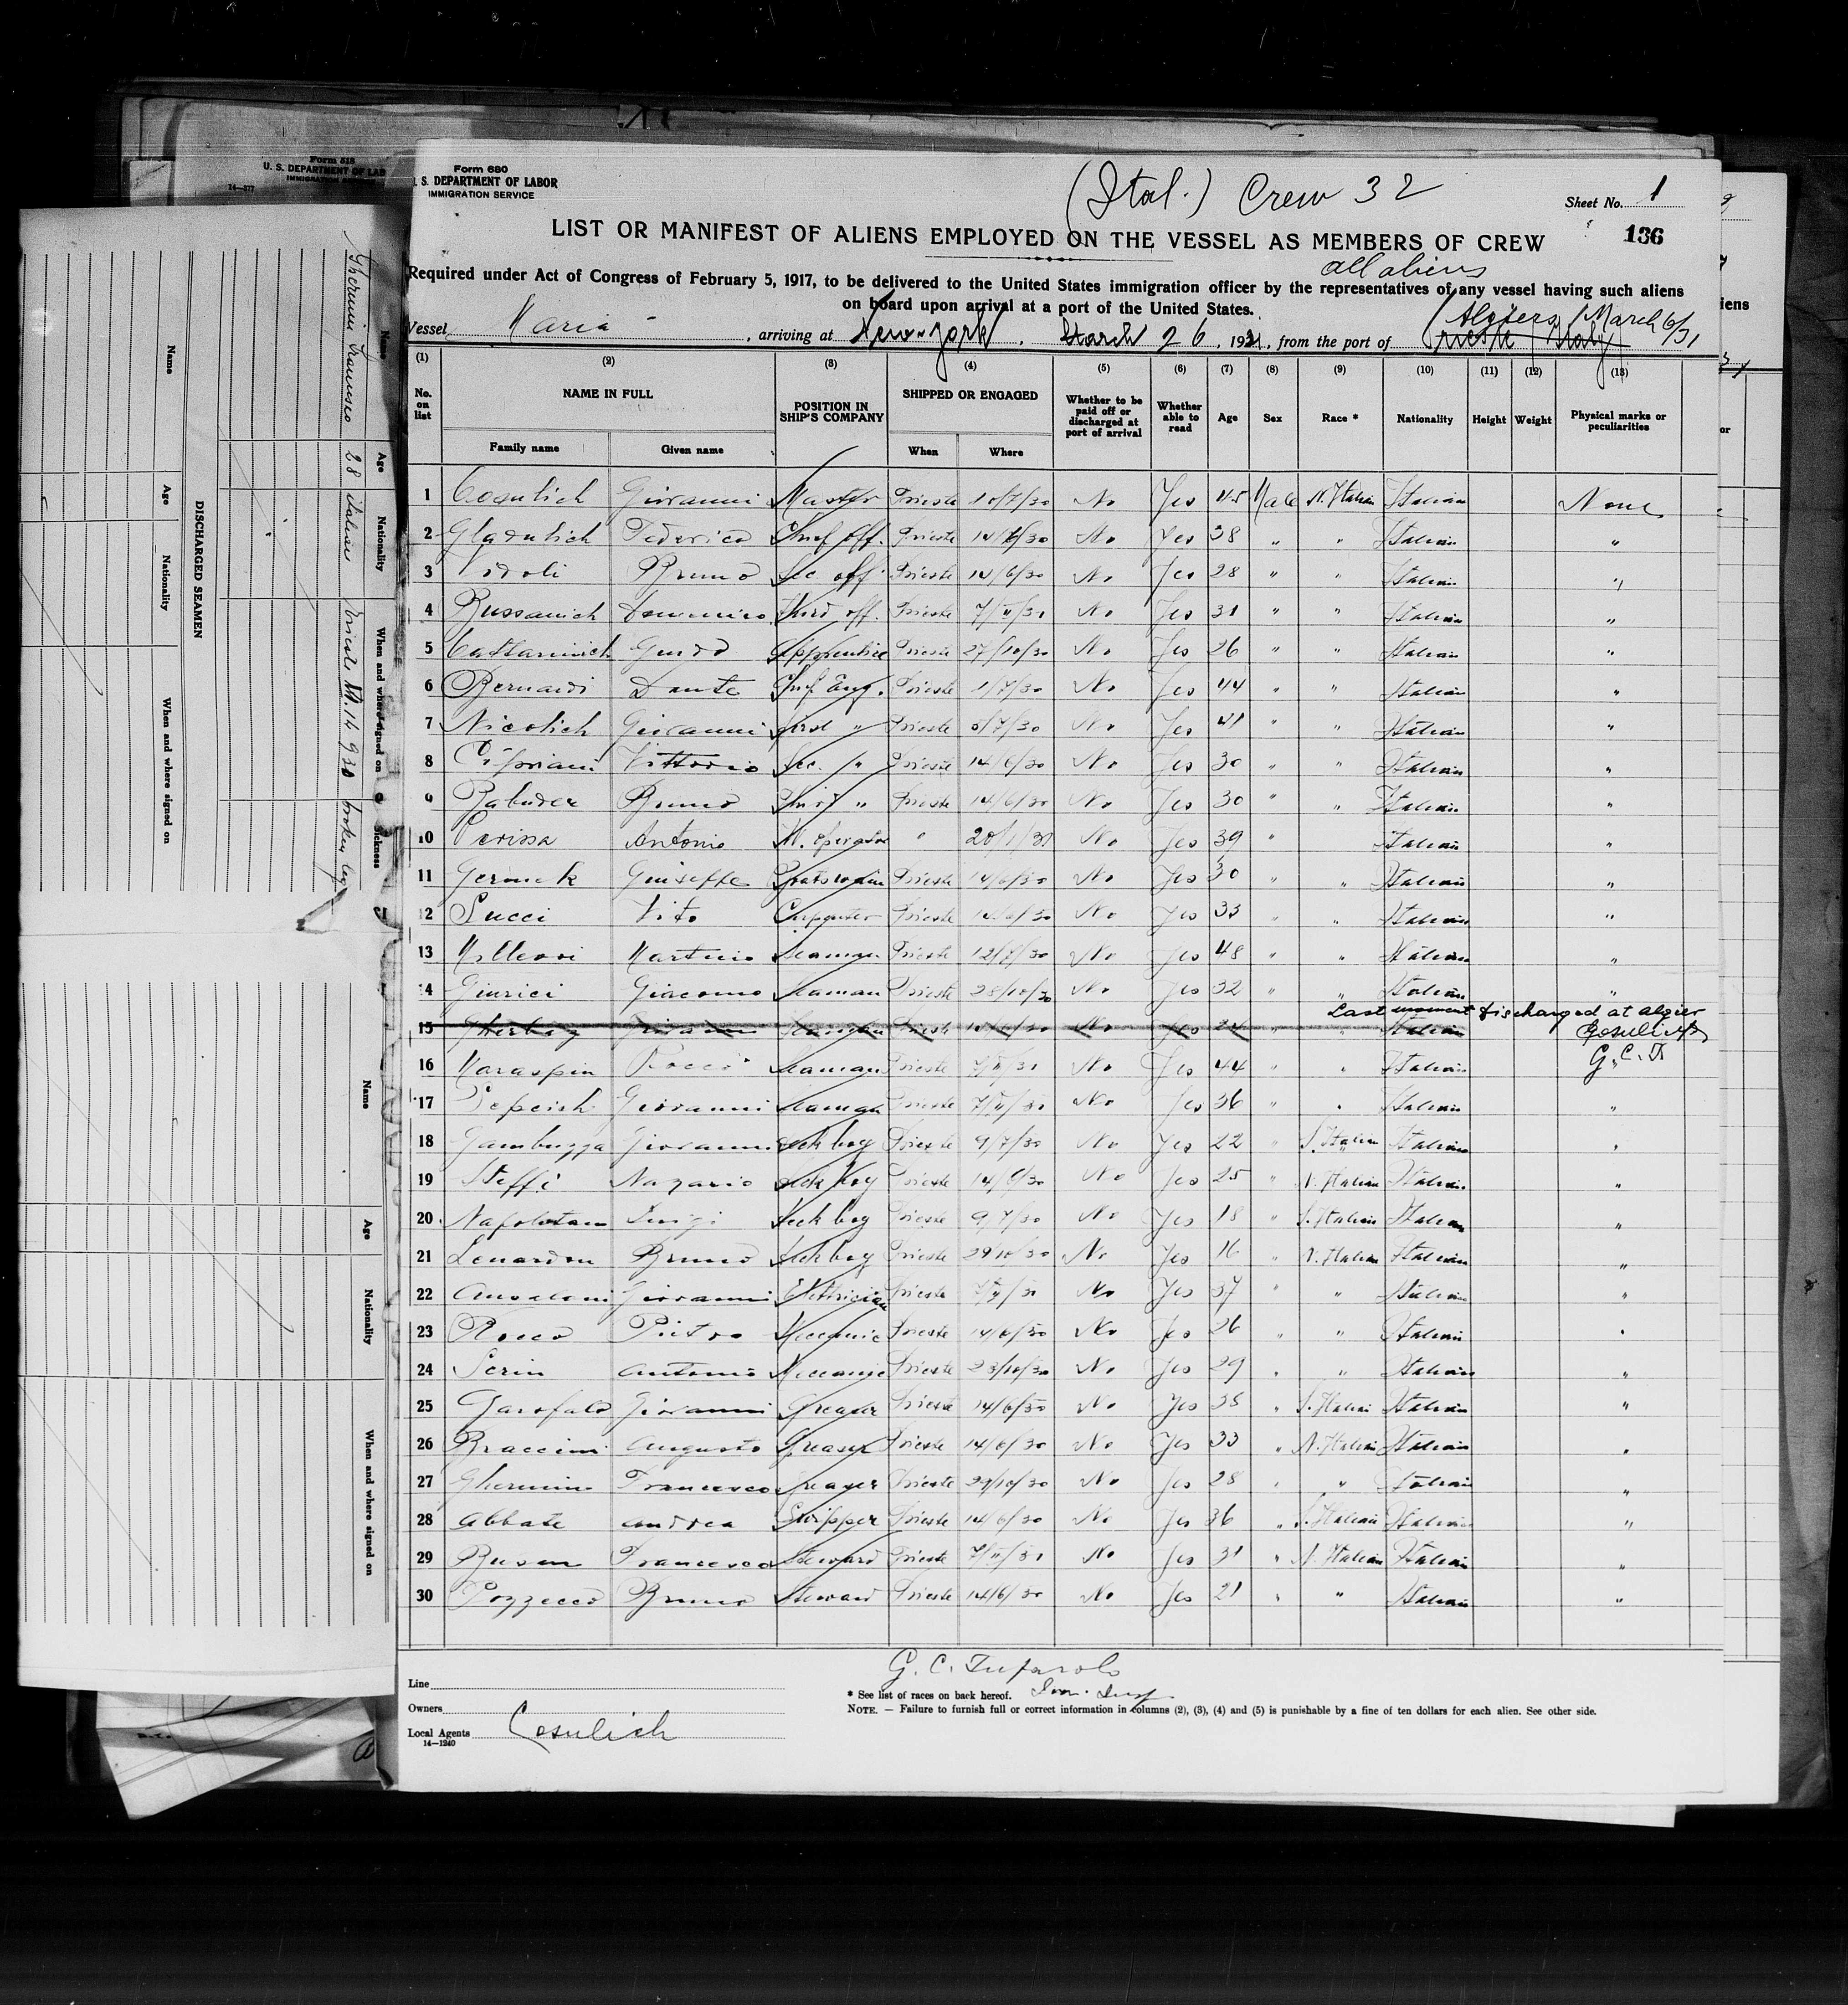 Form 680
U. S. DEPARTMENT OF LABOR
IMMIGRATION SERVICE
(Ital.) Crew 32
Sheet No. 1
136
LIST OR MANIFEST OF ALIENS EMPLOYED ON THE VESSEL AS MEMBERS OF CREW
all aliens
Required under Act of Congress of February 5, 1917, to be delivered to the United States immigration officer by the representatives of any vessel having such aliens
on board upon arrival at a port of the United States.
Algiers / March 6/31
Vessel Maria, arriving at New-York, March 26, 1931, from the port of Trieste Italy
(1) (2) (3) (4) (5) (6) (7) (8) (9) (10) (11) (12) (13)
No. on list NAME IN FULL Family name Given name POSITION IN SHIP'S COMPANY SHIPPED OR ENGAGED When Where Whether to be paid off or discharged at port of arrival Whether able to read Age Sex Race * Nationality Height Weight Physical marks or peculiarities
1 Cosulich Giovanni Master Trieste 10/7/30 No Yes 45 Male N. Italian Italian None
2 Gladulich Federico Chief Off. Trieste 14/6/30 No Yes 38 " " Italian "
3 Bruno Sec. off. Trieste 14/6/30 No Yes 28 " " Italian "
4 Russanich Domenico Third off. Trieste No Yes 31 " " Italian "
5 Cattarinich Guido Apprentice Trieste 27/10/30 No Yes 26 " " Italian "
6 Bernardi Dante Chief Eng. Trieste 1/7/30 No Yes 44 " " Italian "
7 Nicolich Giovanni First " Trieste No Yes 41 " " Italian "
8 Cipriani Vittorio Sec. " Trieste 14/6/30 No Yes 30 " " Italian "
9 Rabuder Bruno Third " Trieste 14/6/30 No Yes 30 " " Italian "
10 Perissa Antonio W. Operator " No Yes 39 " Italian "
11 Germek Giuseppe Trieste 14/6/30 No Yes 30 " " Italian "
12 Succi Vito Carpenter Trieste 14/6/30 No Yes 33 " " Italian "
13 Martino Seaman Trieste 12/7/30 No Yes 48 " " Italian "
14 Giurici Giacomo Seaman Trieste 28/10/30 No Yes 32 " " Italian "
Last moment discharged at algier
15 Seaman Trieste 14/6/30 No Yes 24 " " Italian Cosulich
16 Maraspin Rocco Seaman Trieste No Yes 44 " " Italian G.C.T.
17 Giovanni Seaman Trieste No Yes 36 " " Italian "
18 Gambuzza Giovanni Deck boy Trieste 9/7/30 No Yes 22 " S. Italian Italian "
19 Steffi Nazario Deck boy Trieste 14/6/30 No Yes 25 " N. Italian Italian "
20 Napoletan Luigi Deck boy Trieste 9/7/30 No Yes 18 " S. Italian Italian "
21 Lenardon Bruno Deck boy Trieste 29/10/30 No Yes 16 " N. Italian Italian "
22 Giovanni Elettrician Trieste No Yes 37 " " Italian "
23 Rocco Pietro Meccanic Trieste 14/6/30 No Yes 26 " " Italian "
24 Serin Antonio Meccanic Trieste 23/10/30 No Yes 29 " " Italian "
25 Garofalo Giovanni Greaser Trieste 14/6/30 No Yes 38 " S. Italian Italian "
26 Braccini Augusto Greaser Trieste 14/6/30 No Yes 33 " N. Italian Italian "
27 Ghermin Francesco Greaser Trieste 29/10/30 No Yes 28 " " Italian "
28 Abbate Andrea Trieste 14/6/30 No Yes 36 " S. Italian Italian "
29 Busan Francesco Steward Trieste No Yes 31 " N. Italian Italian "
30 Pozzecco Bruno Steward Trieste 14/6/30 No Yes 21 " " Italian "
Line
Owners
Local Agents Cosulich
14—1240
G. C.
* See list of races on back hereof. Imm. Insp.
NOTE. — Failure to furnish full or correct information in columns (2), (3), (4) and (5) is punishable by a fine of ten dollars for each alien. See other side.
Form 518
U. S. DEPARTMENT OF LAB
14—577
Name Age Nationality When and where signed on Sickness
Ghermin Francesco 28 italian Trieste broken leg
DISCHARGED SEAMEN
Name Age Nationality When and where signed on
Name Age Nationality When and where signed on
iens
or